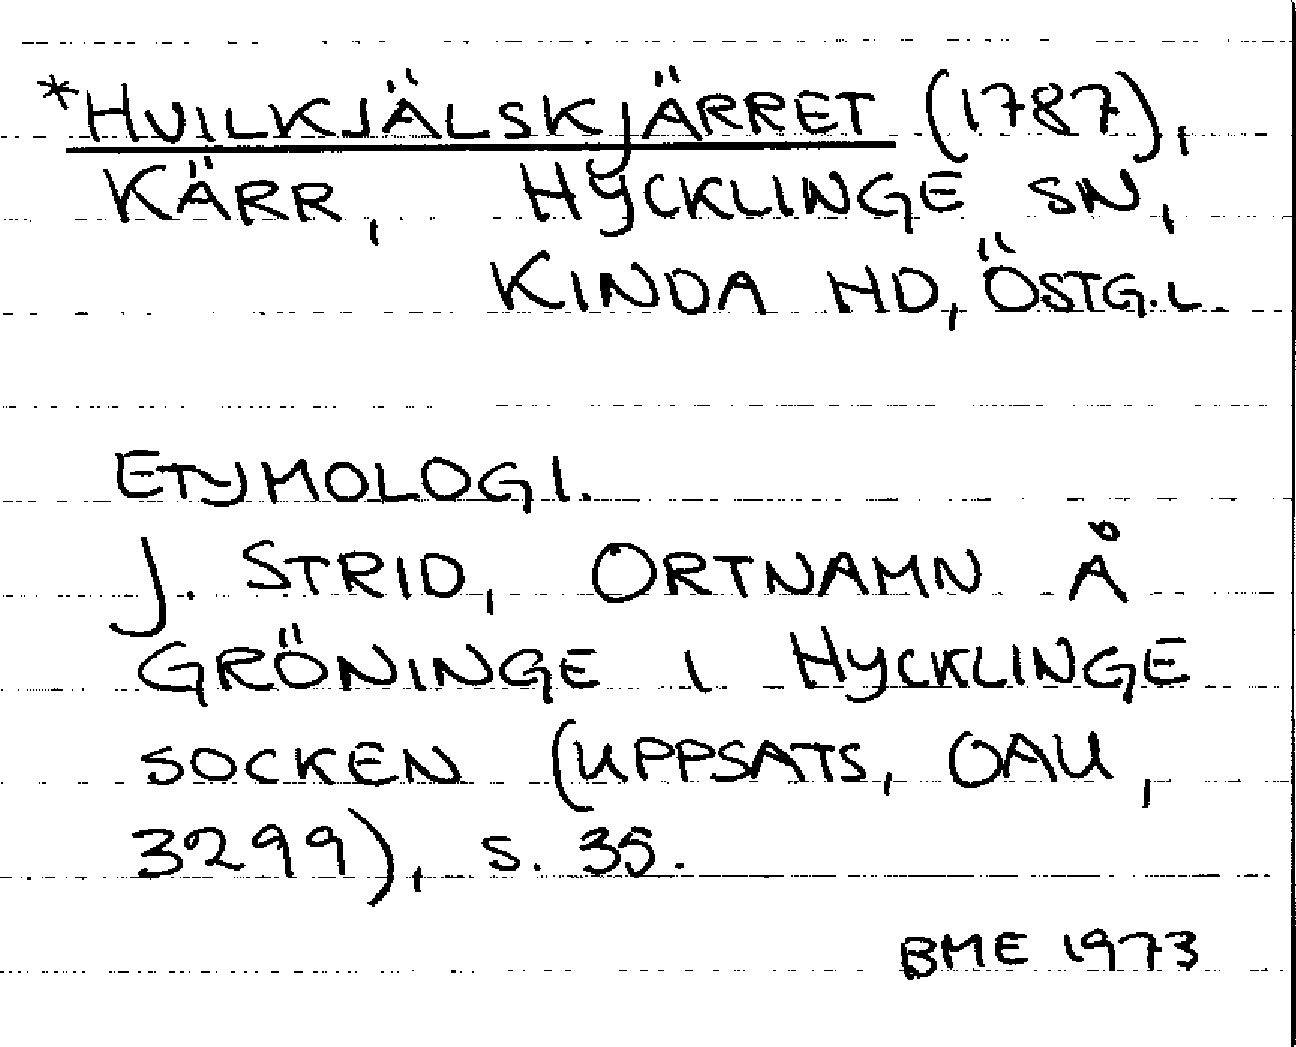 *HVILKJÄLSKJÄRRET (1787),
KÄRR, HYCKLINGE SN,
KINDA HD, ÖSTG.L.
ETYMOLOGI.
J. STRID, ORTNAMN Å
GRÖNINGE I HYCKLINGE
SOCKEN (UPPSATS, OAU,
3299), S. 35.
BME 1973